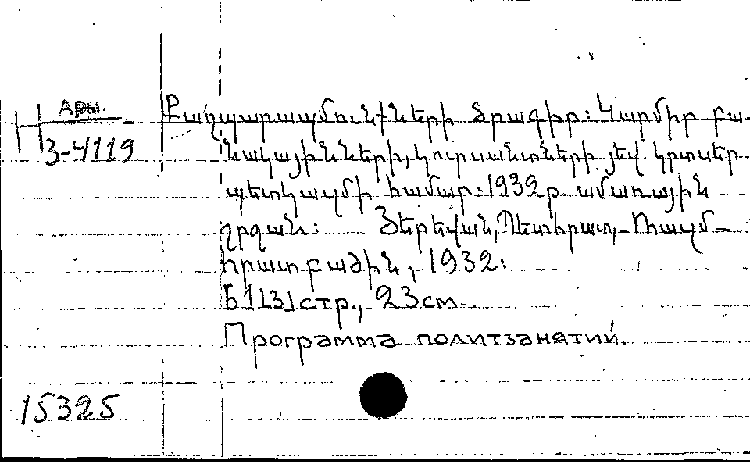 Арм.
3-4119
Քաղպարապմունքների ծրագիր: Կարմիր բա-
նակայինների, կուրսանտների յեվ կրտսեր
պետկազմի համար: 1932 թ ամառային
շրջան: Յերեվան, Պետհրատ, Ռազմ-
հրատ բաժին, 1932:
51[3] стр., 23см
Программа политзанятий.
15325